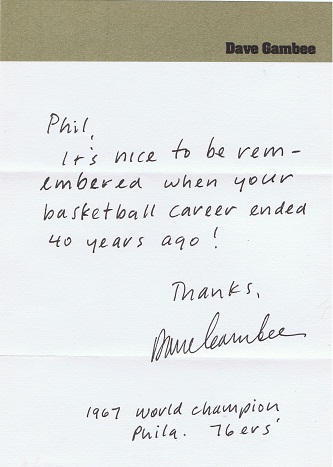 Dave Gambee
Phil,
It's nice to be rem-
embered when your
basketball career ended
40 years ago!
Thanks,
Dave Gambee
1967 world champion
Phila. 76ers'